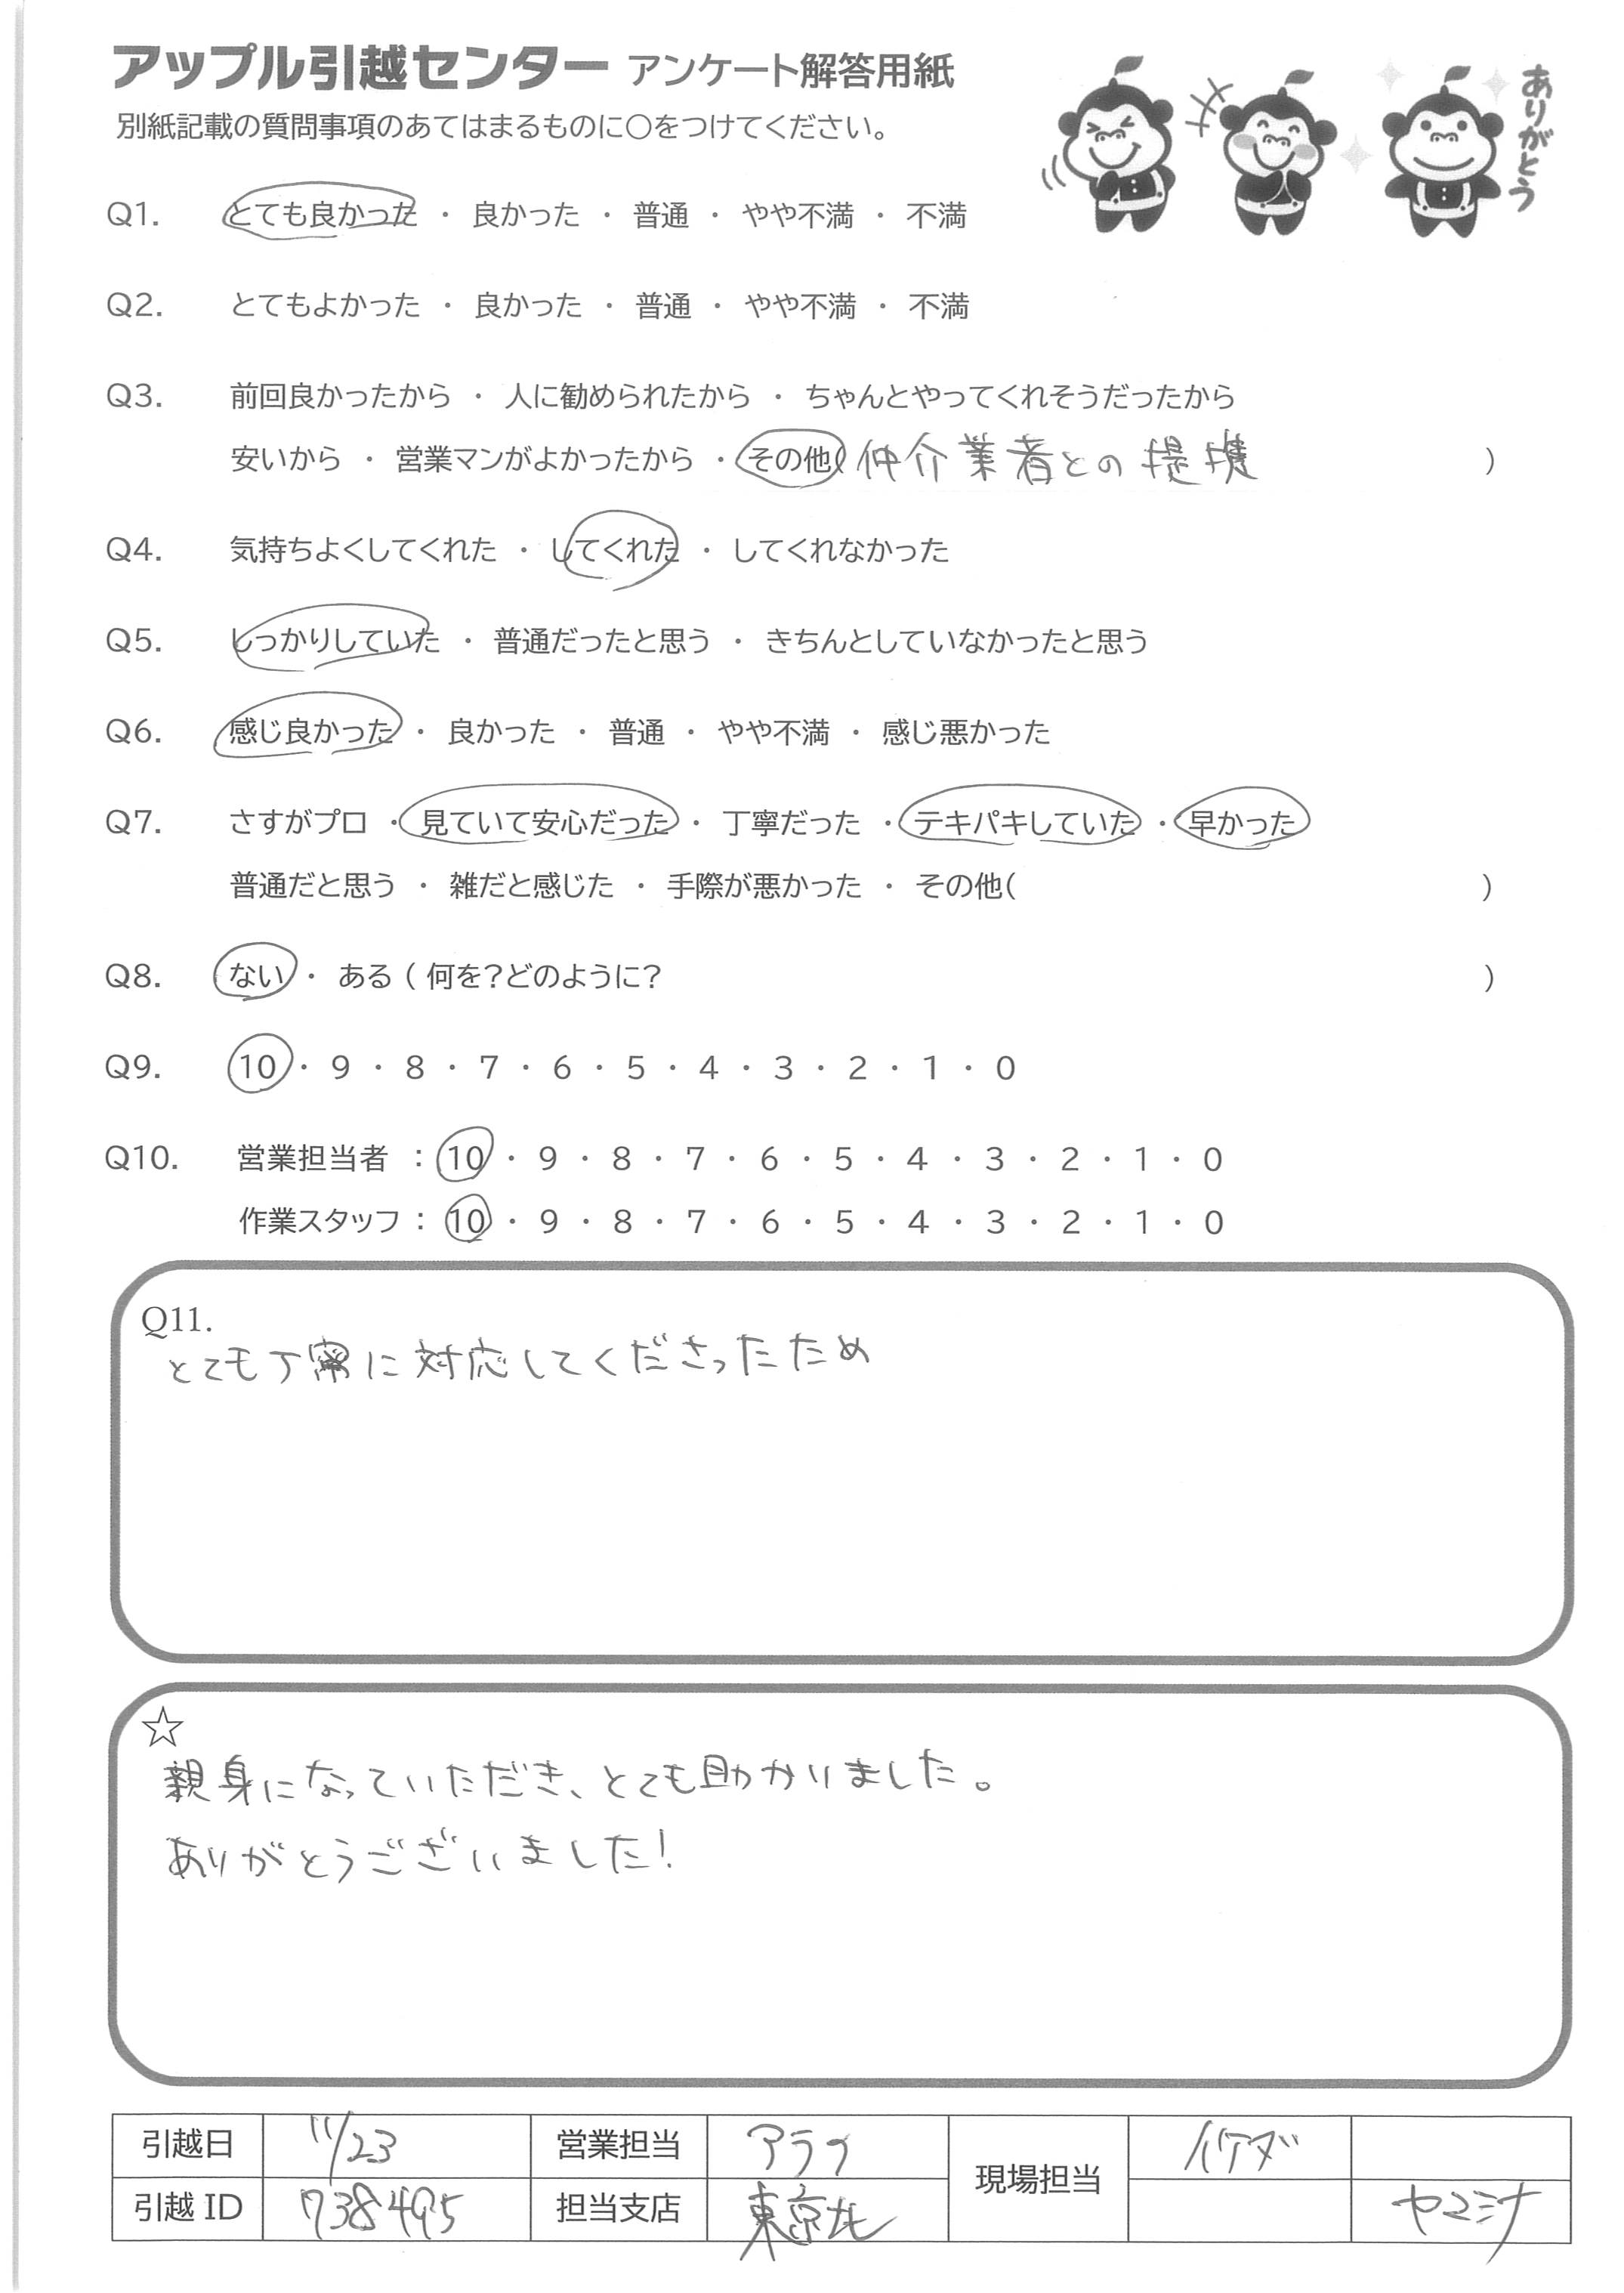 アップル引越センター アンケート解答用紙
別紙記載の質問事項のあてはまるものに○をつけてください。
ありがとう
Q1. とても良かった ・ 良かった ・ 普通 ・ やや不満 ・ 不満
Q2. とてもよかった ・ 良かった ・ 普通 ・ やや不満 ・ 不満
Q3. 前回良かったから ・ 人に勧められたから ・ ちゃんとやってくれそうだったから
安いから ・ 営業マンがよかったから ・ その他( 仲介業者との提携 )
Q4. 気持ちよくしてくれた ・ してくれた ・ してくれなかった
Q5. しっかりしていた ・ 普通だったと思う ・ きちんとしていなかったと思う
Q6. 感じ良かった ・ 良かった ・ 普通 ・ やや不満 ・ 感じ悪かった
Q7. さすがプロ ・ 見ていて安心だった ・ 丁寧だった ・ テキパキしていた ・ 早かった
普通だと思う ・ 雑だと感じた ・ 手際が悪かった ・ その他( )
Q8. ない ・ ある ( 何を?どのように? )
Q9. 10 ・ 9 ・ 8 ・ 7 ・ 6 ・ 5 ・ 4 ・ 3 ・ 2 ・ 1 ・ 0
Q10. 営業担当者 : 10 ・ 9 ・ 8 ・ 7 ・ 6 ・ 5 ・ 4 ・ 3 ・ 2 ・ 1 ・ 0
作業スタッフ : 10 ・ 9 ・ 8 ・ 7 ・ 6 ・ 5 ・ 4 ・ 3 ・ 2 ・ 1 ・ 0
Q11.
とても丁寧に対応してくださったため
☆
親身になっていただき、とても助かりました。
ありがとうございました!
引越日 11/23 営業担当 現場担当 イケダ
引越 ID 738495 担当支店 東京北 ヤマミナ